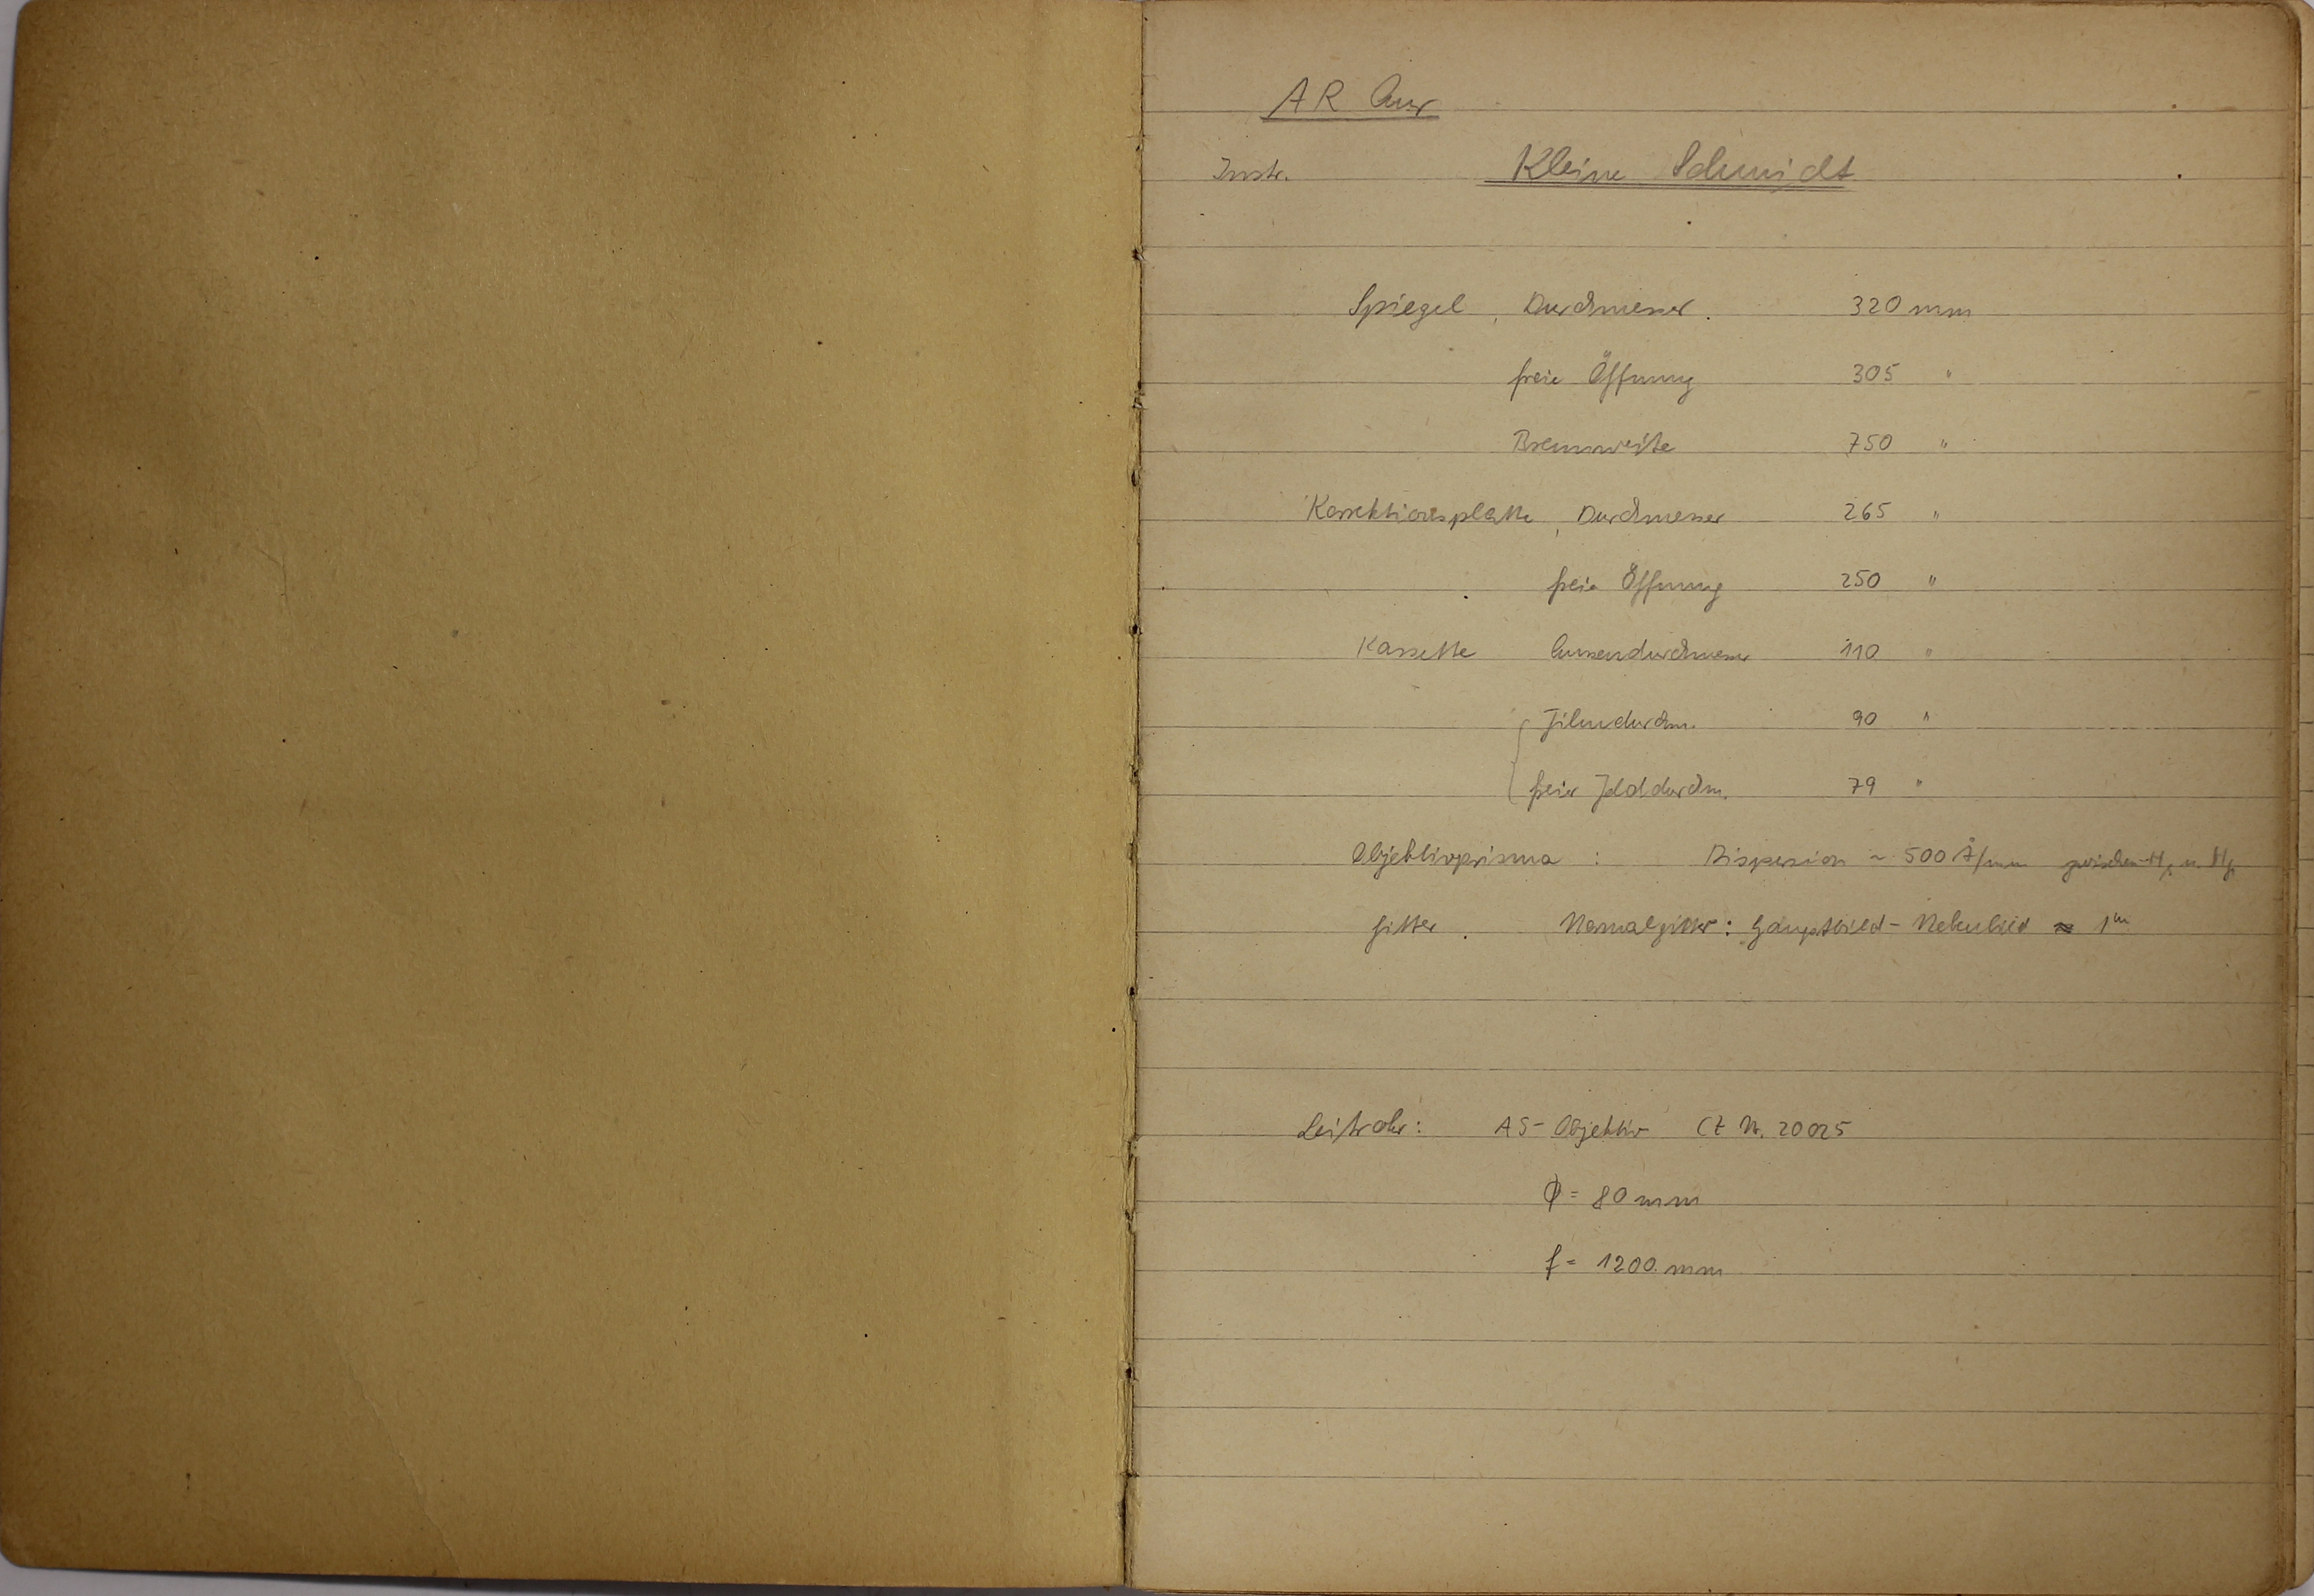 AR Aur
Instr. Kleine Schmidt
Spiegel, Durchmesser. 320 mm
freie Öffnung 305 "
Brennweite 750 "
Korrektionsplatte, Durchmesser 265 "
freie Öffnung 250 "
Kassette Aussendurchmesser 110 "
Filmdurchm. 90 "
freier Felddurchm. 79 "
Objektivprisma : Dispersion ~ 500 Å/mm zwischen u.
Gitter. Normalgitter: Hauptbild - Nebenbild ≈ 1ᵐ
Leitrohr: AS-Objektiv CZ Nr. 20025
Φ = 80 mm
f = 1200 mm